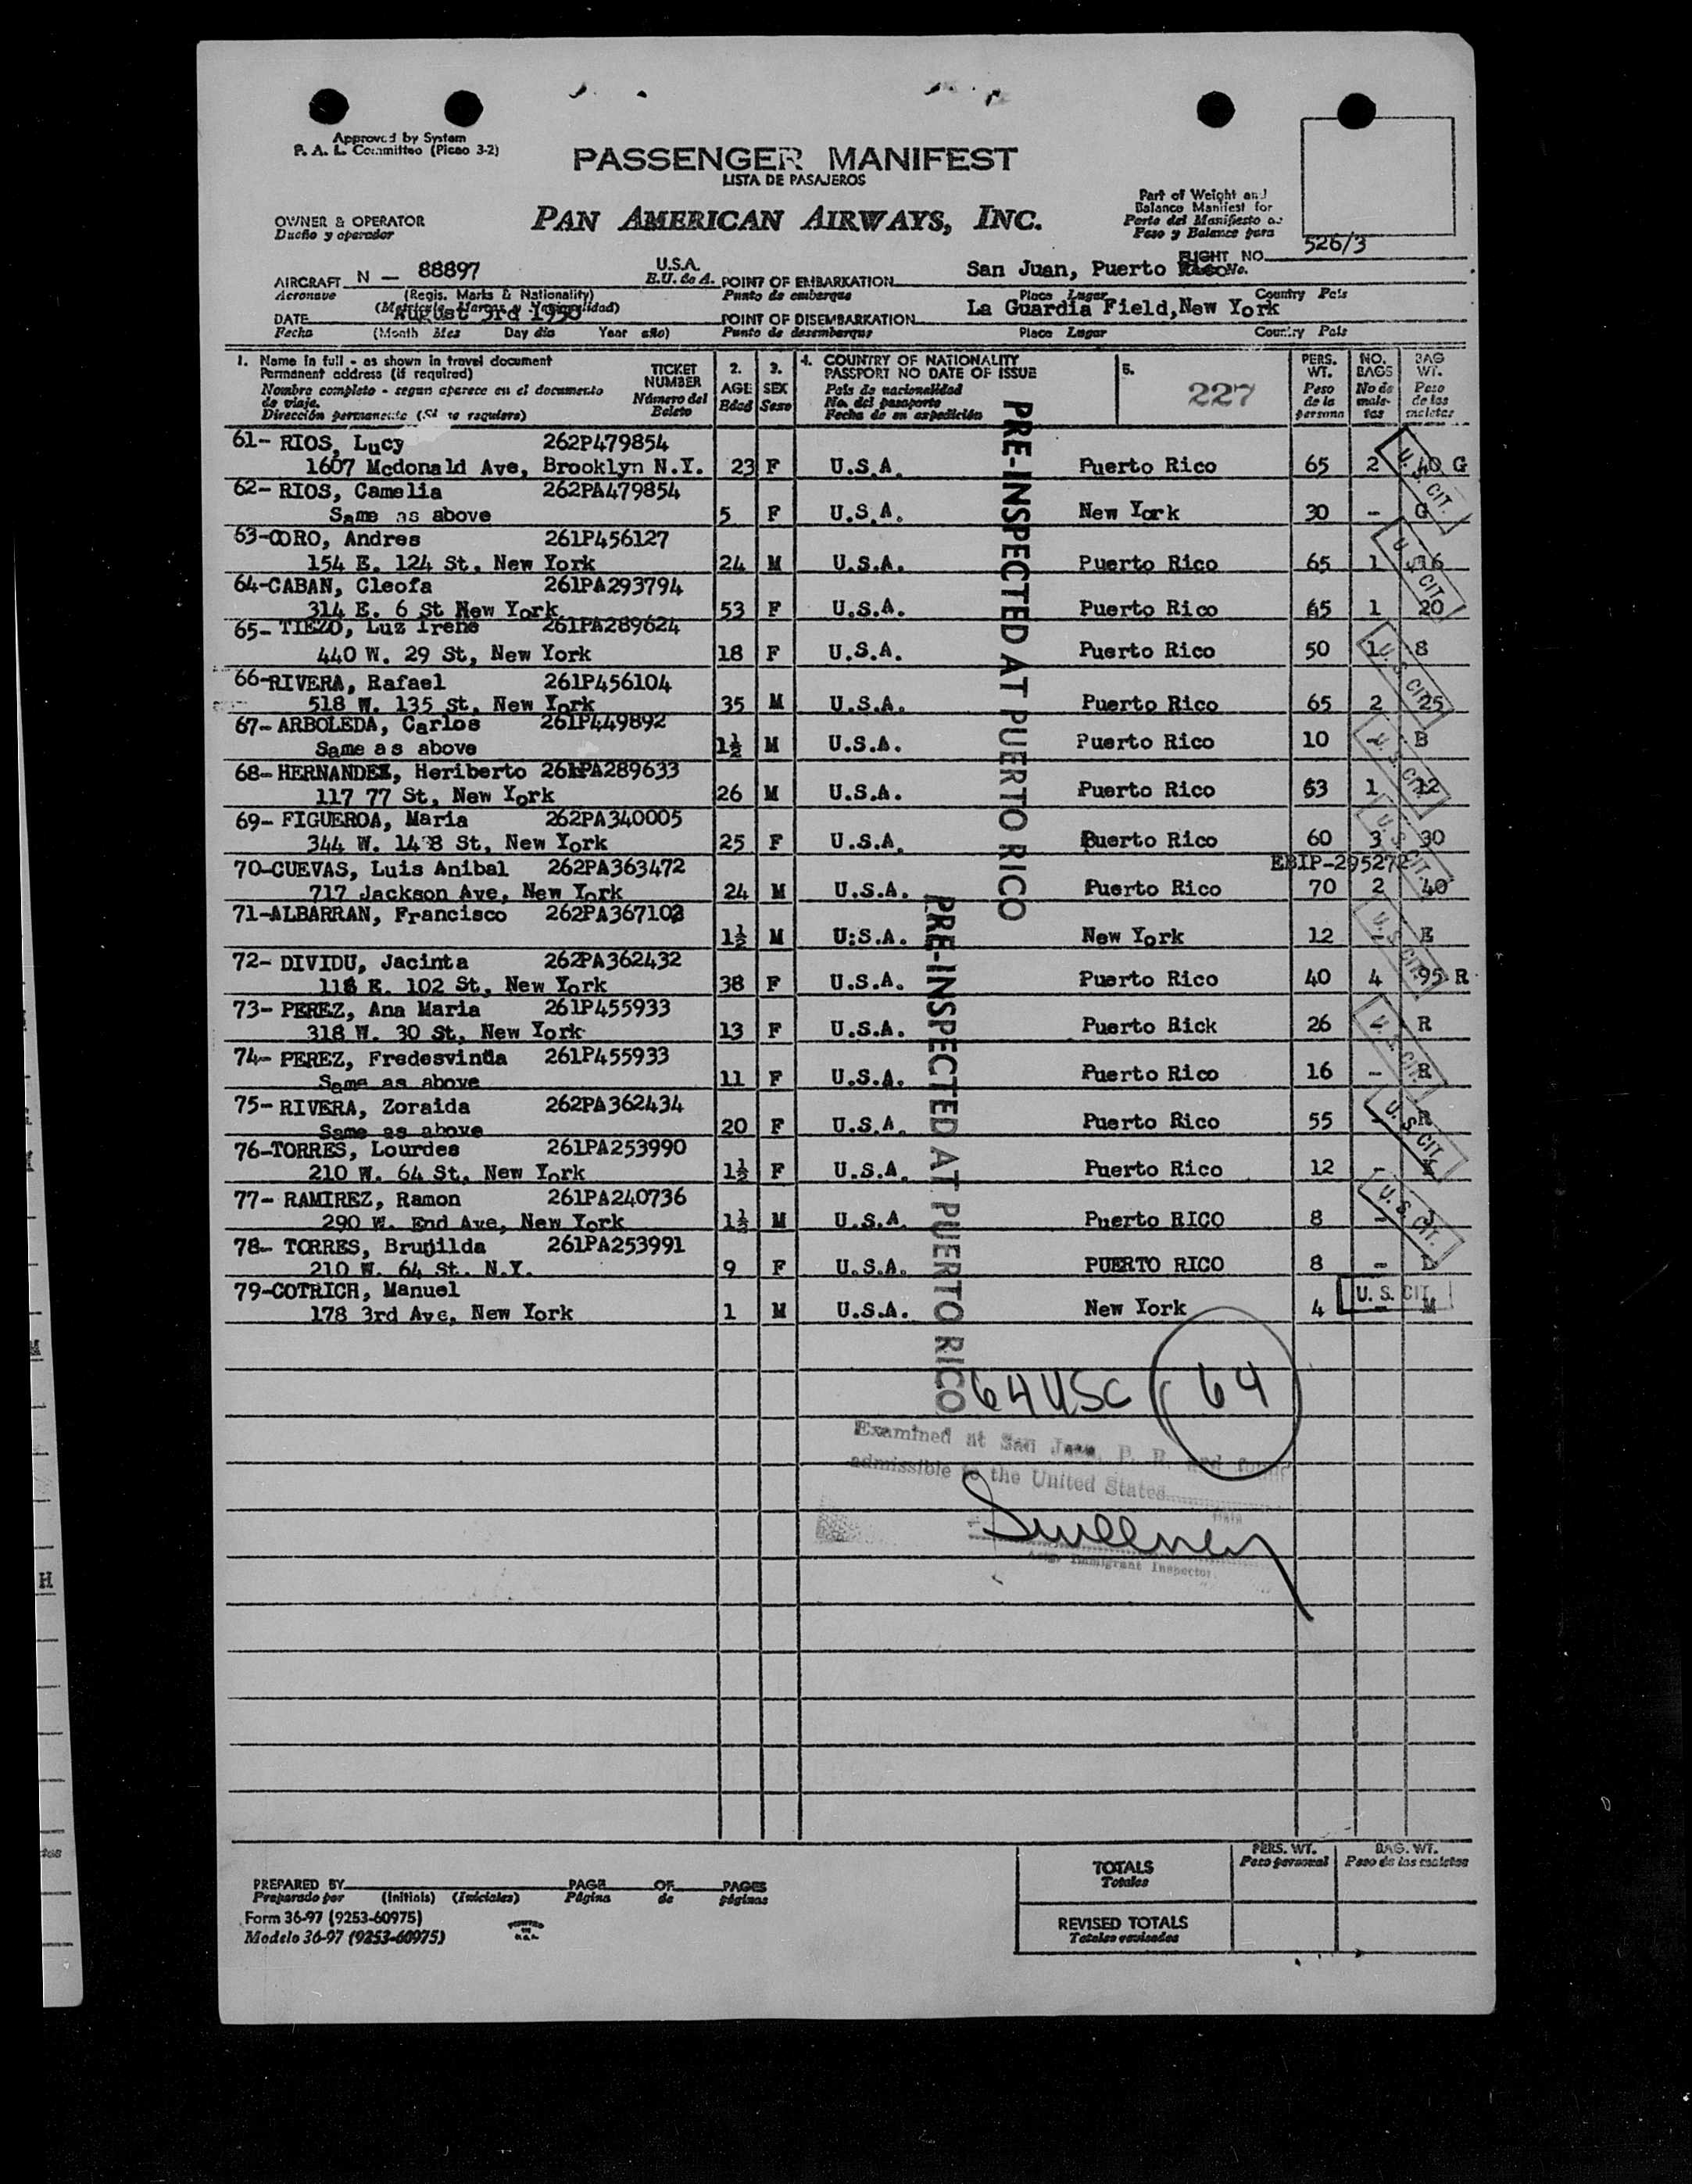 Approved by System
P. A. L. Committee (Picao 3-2)
PASSENGER MANIFEST
LISTA DE PASAJEROS
PAN AMERICAN AIRWAYS, INC.
OWNER & OPERATOR
Dueño y operador
Part of Weight and
Balance Manifest for
Parte del Manifiesto de
Peso y Balance para
FLIGHT NO. 526/3
AIRCRAFT N - 88897 U.S.A.
Aeronave (Regis. Marks & Nationality) E.U. de A.
POINT OF EMBARKATION San Juan, Puerto Rico
Punto de embarque Place Lugar Country País
DATE August 3rd 1950
Fecha (Month Mes Day día Year año)
POINT OF DISEMBARKATION La Guardia Field, New York
Punto de desembarque Place Lugar Country País
1. Name in full - as shown in travel document
Permanent address (if required)
Nombre completo - segun aparece en el documento
de viaje.
Dirección permanente (Si se requiere)
TICKET NUMBER
Número del Boleto
2. AGE Edad
3. SEX Sexo
4. COUNTRY OF NATIONALITY
PASSPORT NO DATE OF ISSUE
País de nacionalidad
No. del pasaporte
Fecha de su expedición
5. 227
PERS. WT. Peso de la persona
NO. BAGS No de maletas
BAG WT. Peso de las maletas
61- RIOS, Lucy 262P479854
1607 Mcdonald Ave, Brooklyn N.Y. 23 F U.S.A. Puerto Rico 65 2 40 G
62- RIOS, Camelia 262PA479854
Same as above 5 F U.S.A. New York 30 - G
63-OORO, Andres 261P456127
154 E. 124 St, New York 24 M U.S.A. Puerto Rico 65 1 16
64-CABAN, Cleofa 261PA293794
314 E. 6 St New York 53 F U.S.A. Puerto Rico 65 1 20
65- TIEZO, Luz Irene 261PA289624
440 W. 29 St, New York 18 F U.S.A. Puerto Rico 50 1 8
66-RIVERA, Rafael 261P456104
518 W. 135 St, New York 35 M U.S.A. Puerto Rico 65 2 25
67- ARBOLEDA, Carlos 261P449892
Same as above 1½ M U.S.A. Puerto Rico 10 - B
68- HERNANDEZ, Heriberto 261PA289633
117 77 St, New York 26 M U.S.A. Puerto Rico 63 1 12
69- FIGUEROA, Maria 262PA340005
344 W. 148 St, New York 25 F U.S.A. Puerto Rico 60 3 30
70-CUEVAS, Luis Anibal 262PA363472 EBIP-295272
717 Jackson Ave, New York 24 M U.S.A. Puerto Rico 70 2 40
71-ALBARRAN, Francisco 262PA367102
1½ M U:S.A. New York 12 - E
72- DIVIDU, Jacinta 262PA362432
118 E. 102 St, New York 38 F U.S.A. Puerto Rico 40 4 95 R
73- PEREZ, Ana Maria 261P455933
318 W. 30 St, New York 13 F U.S.A. Puerto Rick 26 R
74- PEREZ, Fredesvinda 261P455933
Same as above 11 F U.S.A. Puerto Rico 16 - R
75- RIVERA, Zoraida 262PA362434
Same as above 20 F U.S.A. Puerto Rico 55 - R
76-TORRES, Lourdes 261PA253990
210 W. 64 St, New York 1½ F U.S.A. Puerto Rico 12 -
77- RAMIREZ, Ramon 261PA240736
290 W. End Ave, New York 1½ M U.S.A. Puerto RICO 8 -
78- TORRES, Brunilda 261PA253991
210 W. 64 St. N.Y. 9 F U.S.A. PUERTO RICO 8 -
79-COTRICH, Manuel
178 3rd Ave, New York 1 M U.S.A. New York 4 - M
PRE-INSPECTED AT PUERTO RICO
PRE-INSPECTED AT PUERTO RICO
U. S. CIT.
U. S. CIT.
U. S. CIT.
U. S. CIT.
U. S. CIT.
U. S. CIT.
U. S. CIT.
U. S. CIT.
U. S. CIT.
U. S. CIT.
64 USC 64
Examined at San Juan, P. R. and found
admissible to the United States
Sweeney
Immigrant Inspector
TOTALS
Totales
PERS. WT.
Peso personal
BAG. WT.
Peso de las maletas
REVISED TOTALS
Totales revisados
PREPARED BY PAGE OF PAGES
Preparado por (Initials) (Iniciales) Página de páginas
Form 36-97 (9253-60975)
Modelo 36-97 (9253-60975)